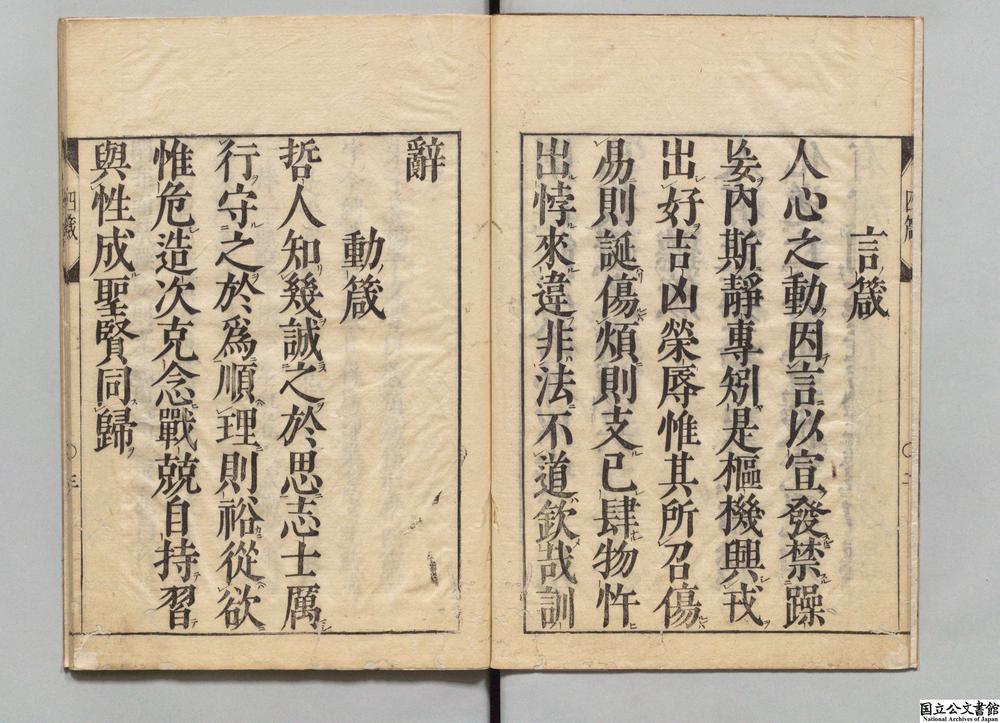 言箴
人心之動因言以宣發禁躁
妄內斯靜專矧是樞機興戎
出好吉凶榮辱惟其所召傷
易則誕傷煩則支已肆物忤
出悖來違非法不道欽哉訓
辭
動箴
哲人知幾誠之於思志士厲
行守之於爲順理則裕從欲
惟危造次克念戰兢自持習
與性成聖賢同歸
四箴
〇二
四箴
〇三
国立公文書館
National Archives of Japan